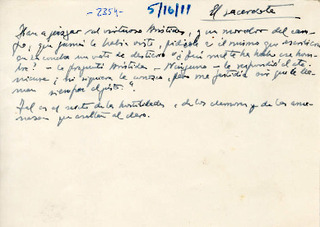 -2354-
5/16/11
El sacerdote
Van a juzgar al virtuoso Arístides, y un morador del cam-
po, que jamás le había visto, pidiole a él mismo que escribiera
en su concha un voto de destierro ¿Qué mal te ha hecho ese hom-
bre? - le preguntó Arístides - Ninguno - le respondió el ate-
niense, ni siquiera le conozco, pero me fastidia oir que le lla-
man siempre el justo".
Tal es el resto de las hostilidades, de los clamores y de las ame-
nazas que asaltan al clero.